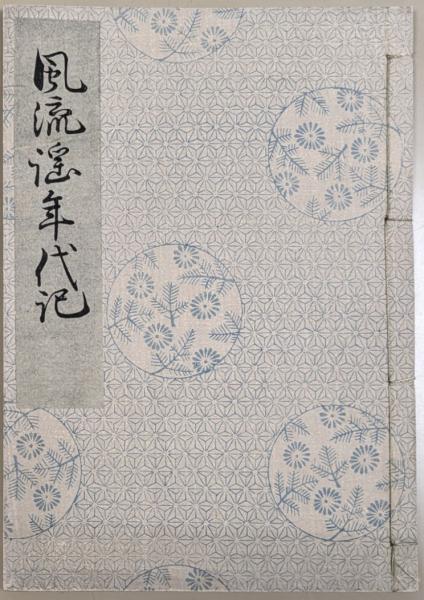 風流謡年代記